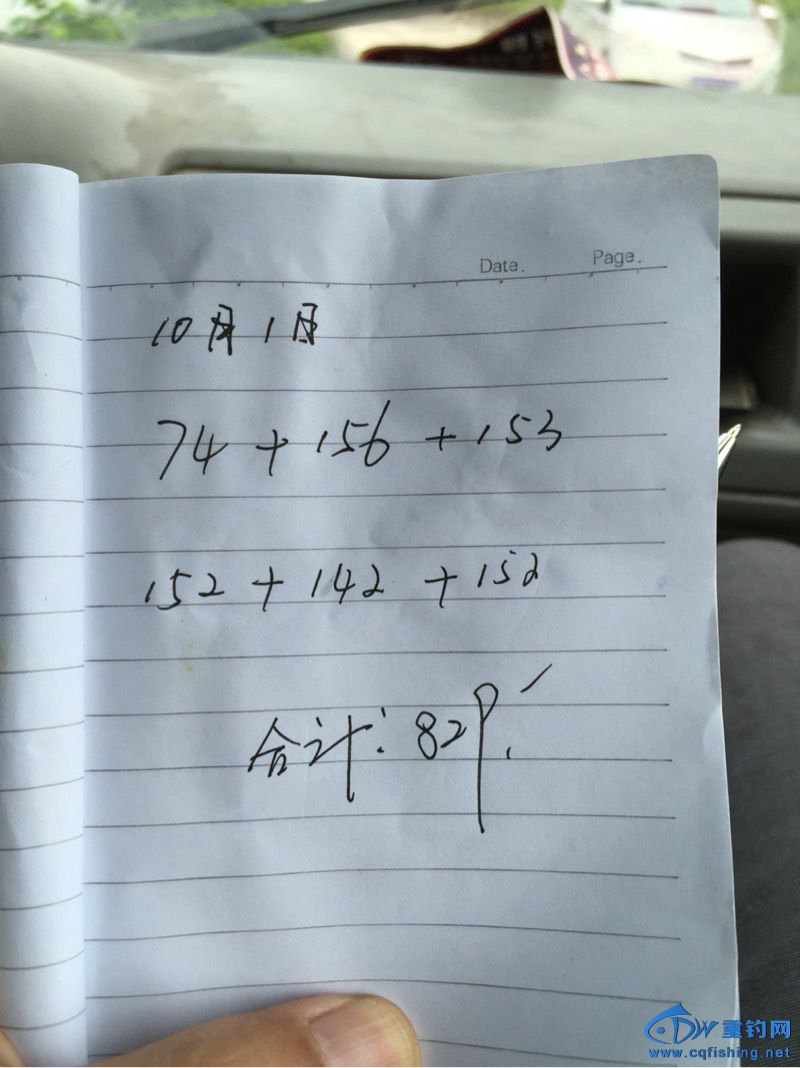 Date. Page.
10月1日
74 + 156 + 153
152 + 142 + 152
合计: 829.
重钓网
www.cqfishing.net